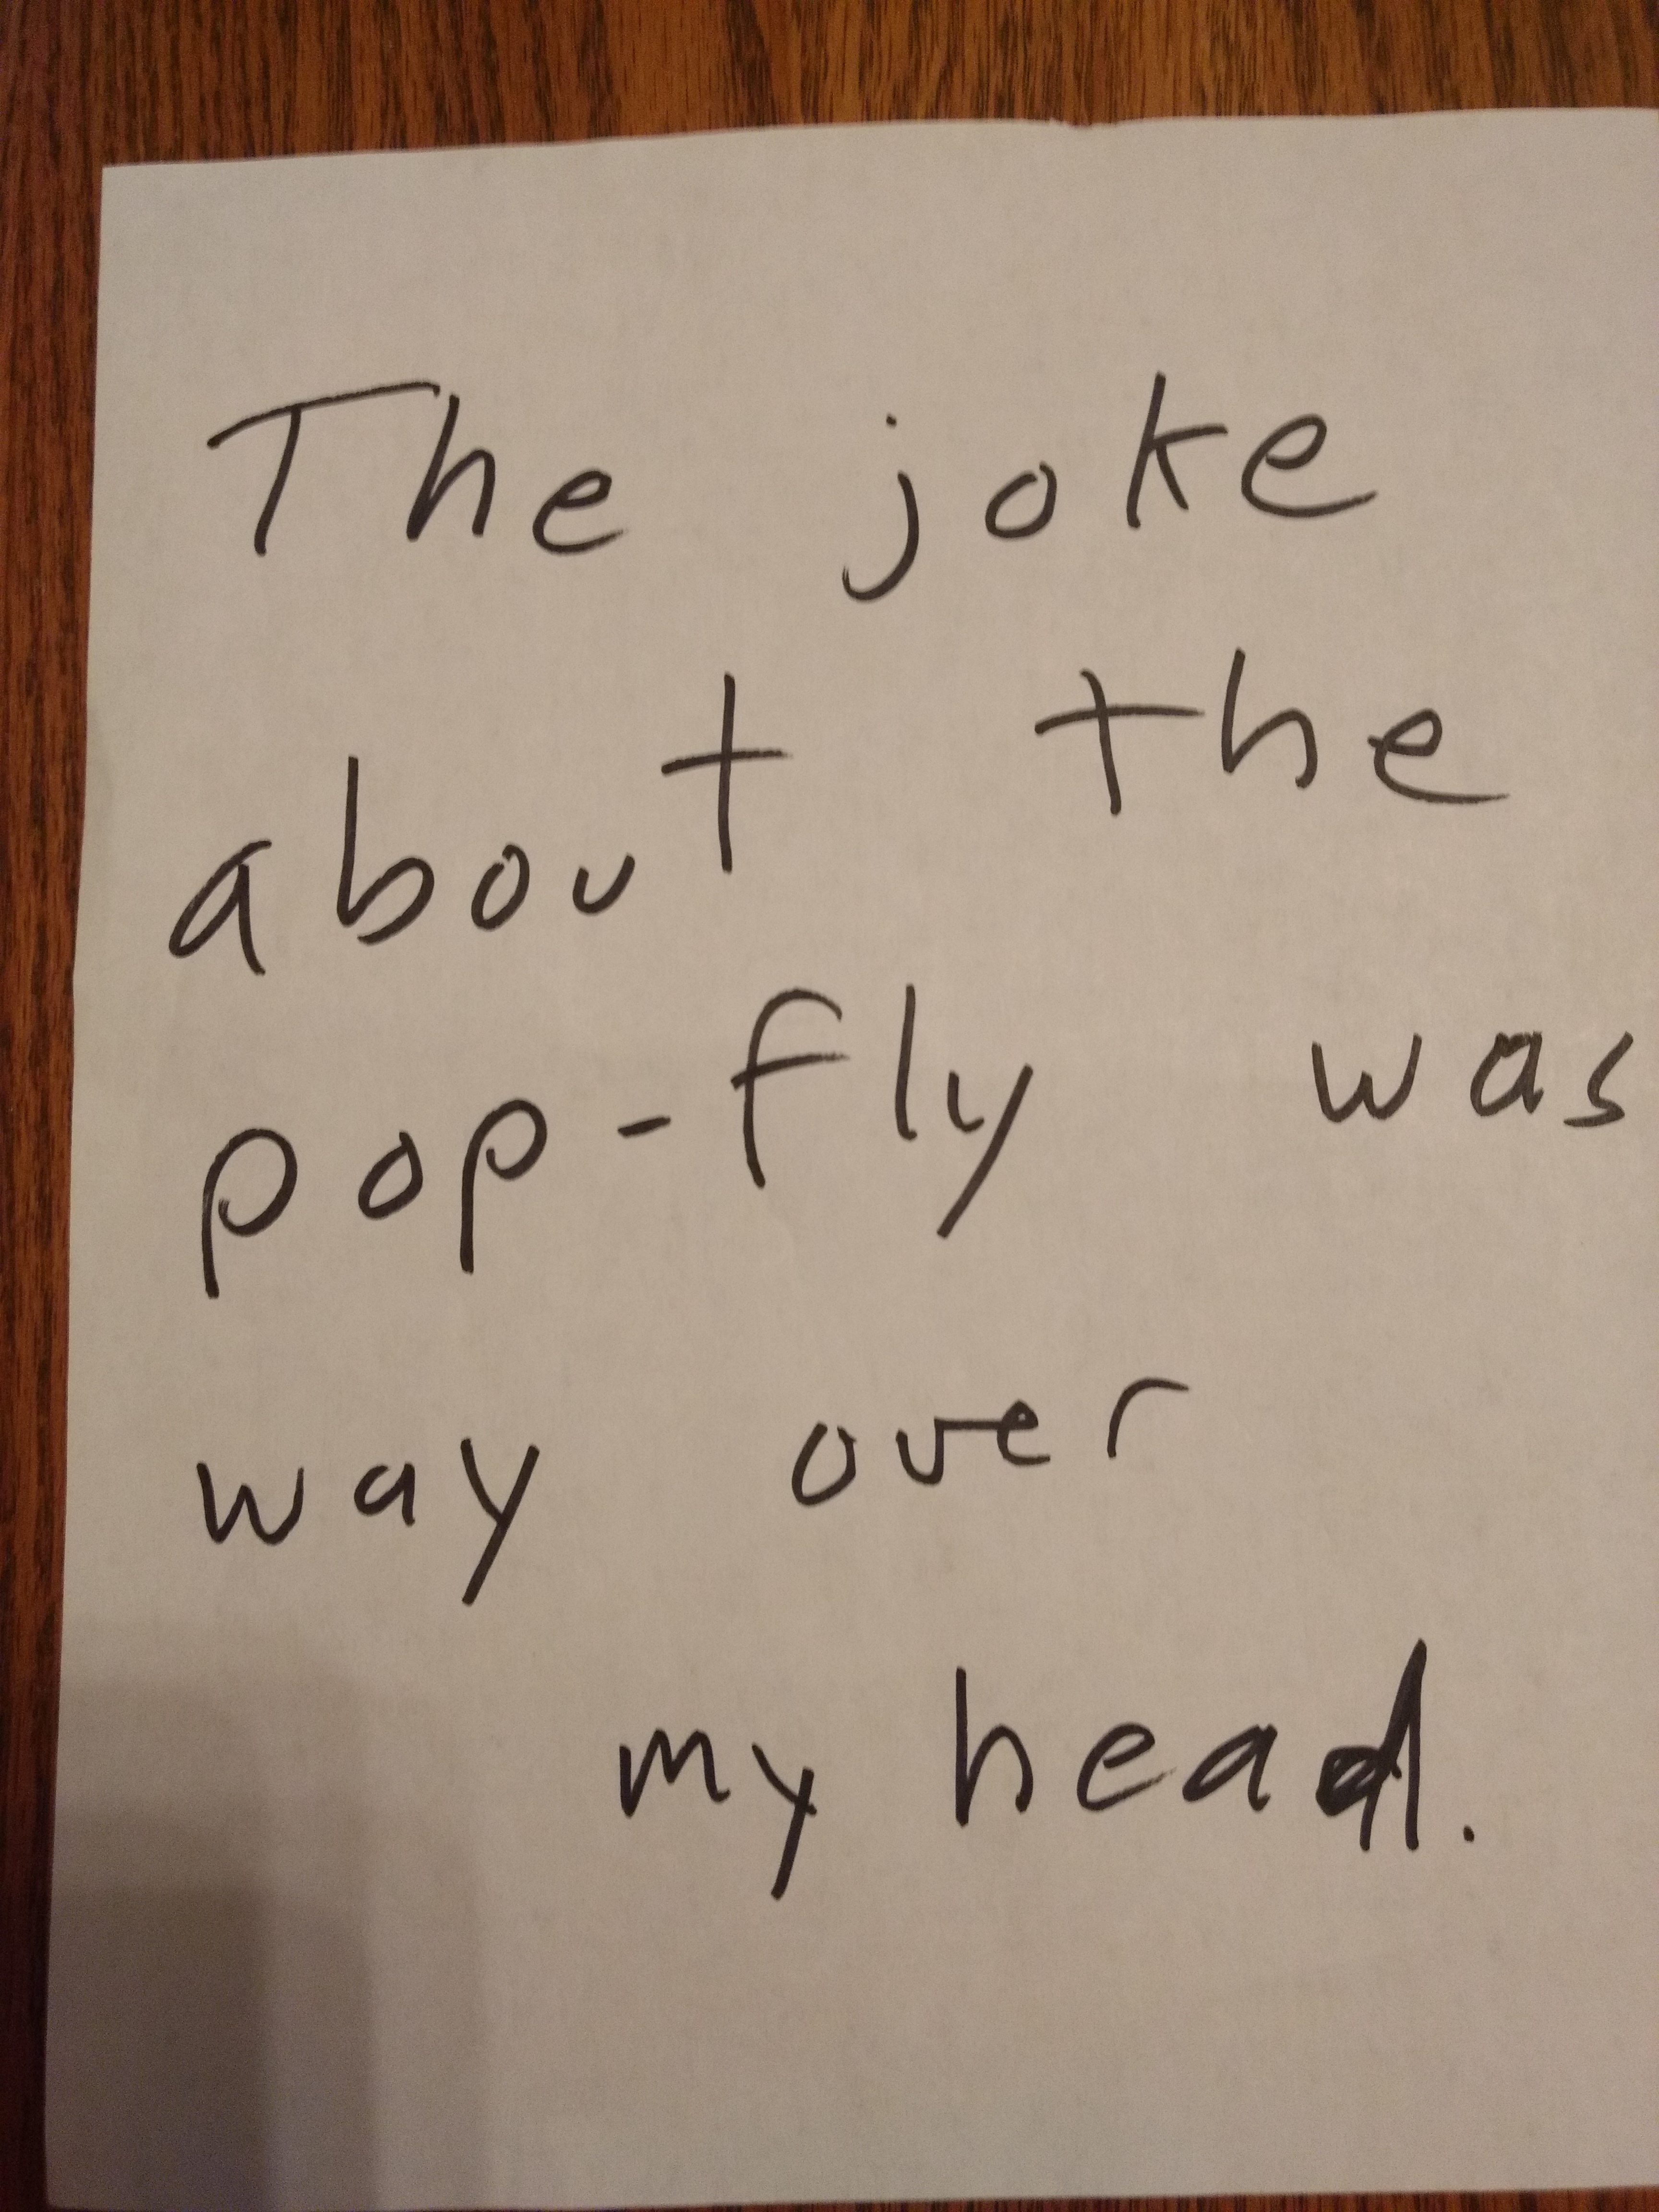 The joke
about the
pop-fly was
way over
my head.